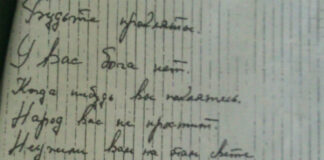 Будьте прокляты.
У вас бога нет.
Когда нибудь вы поплатитесь.
Народ вас не простит.
Неужели вам на